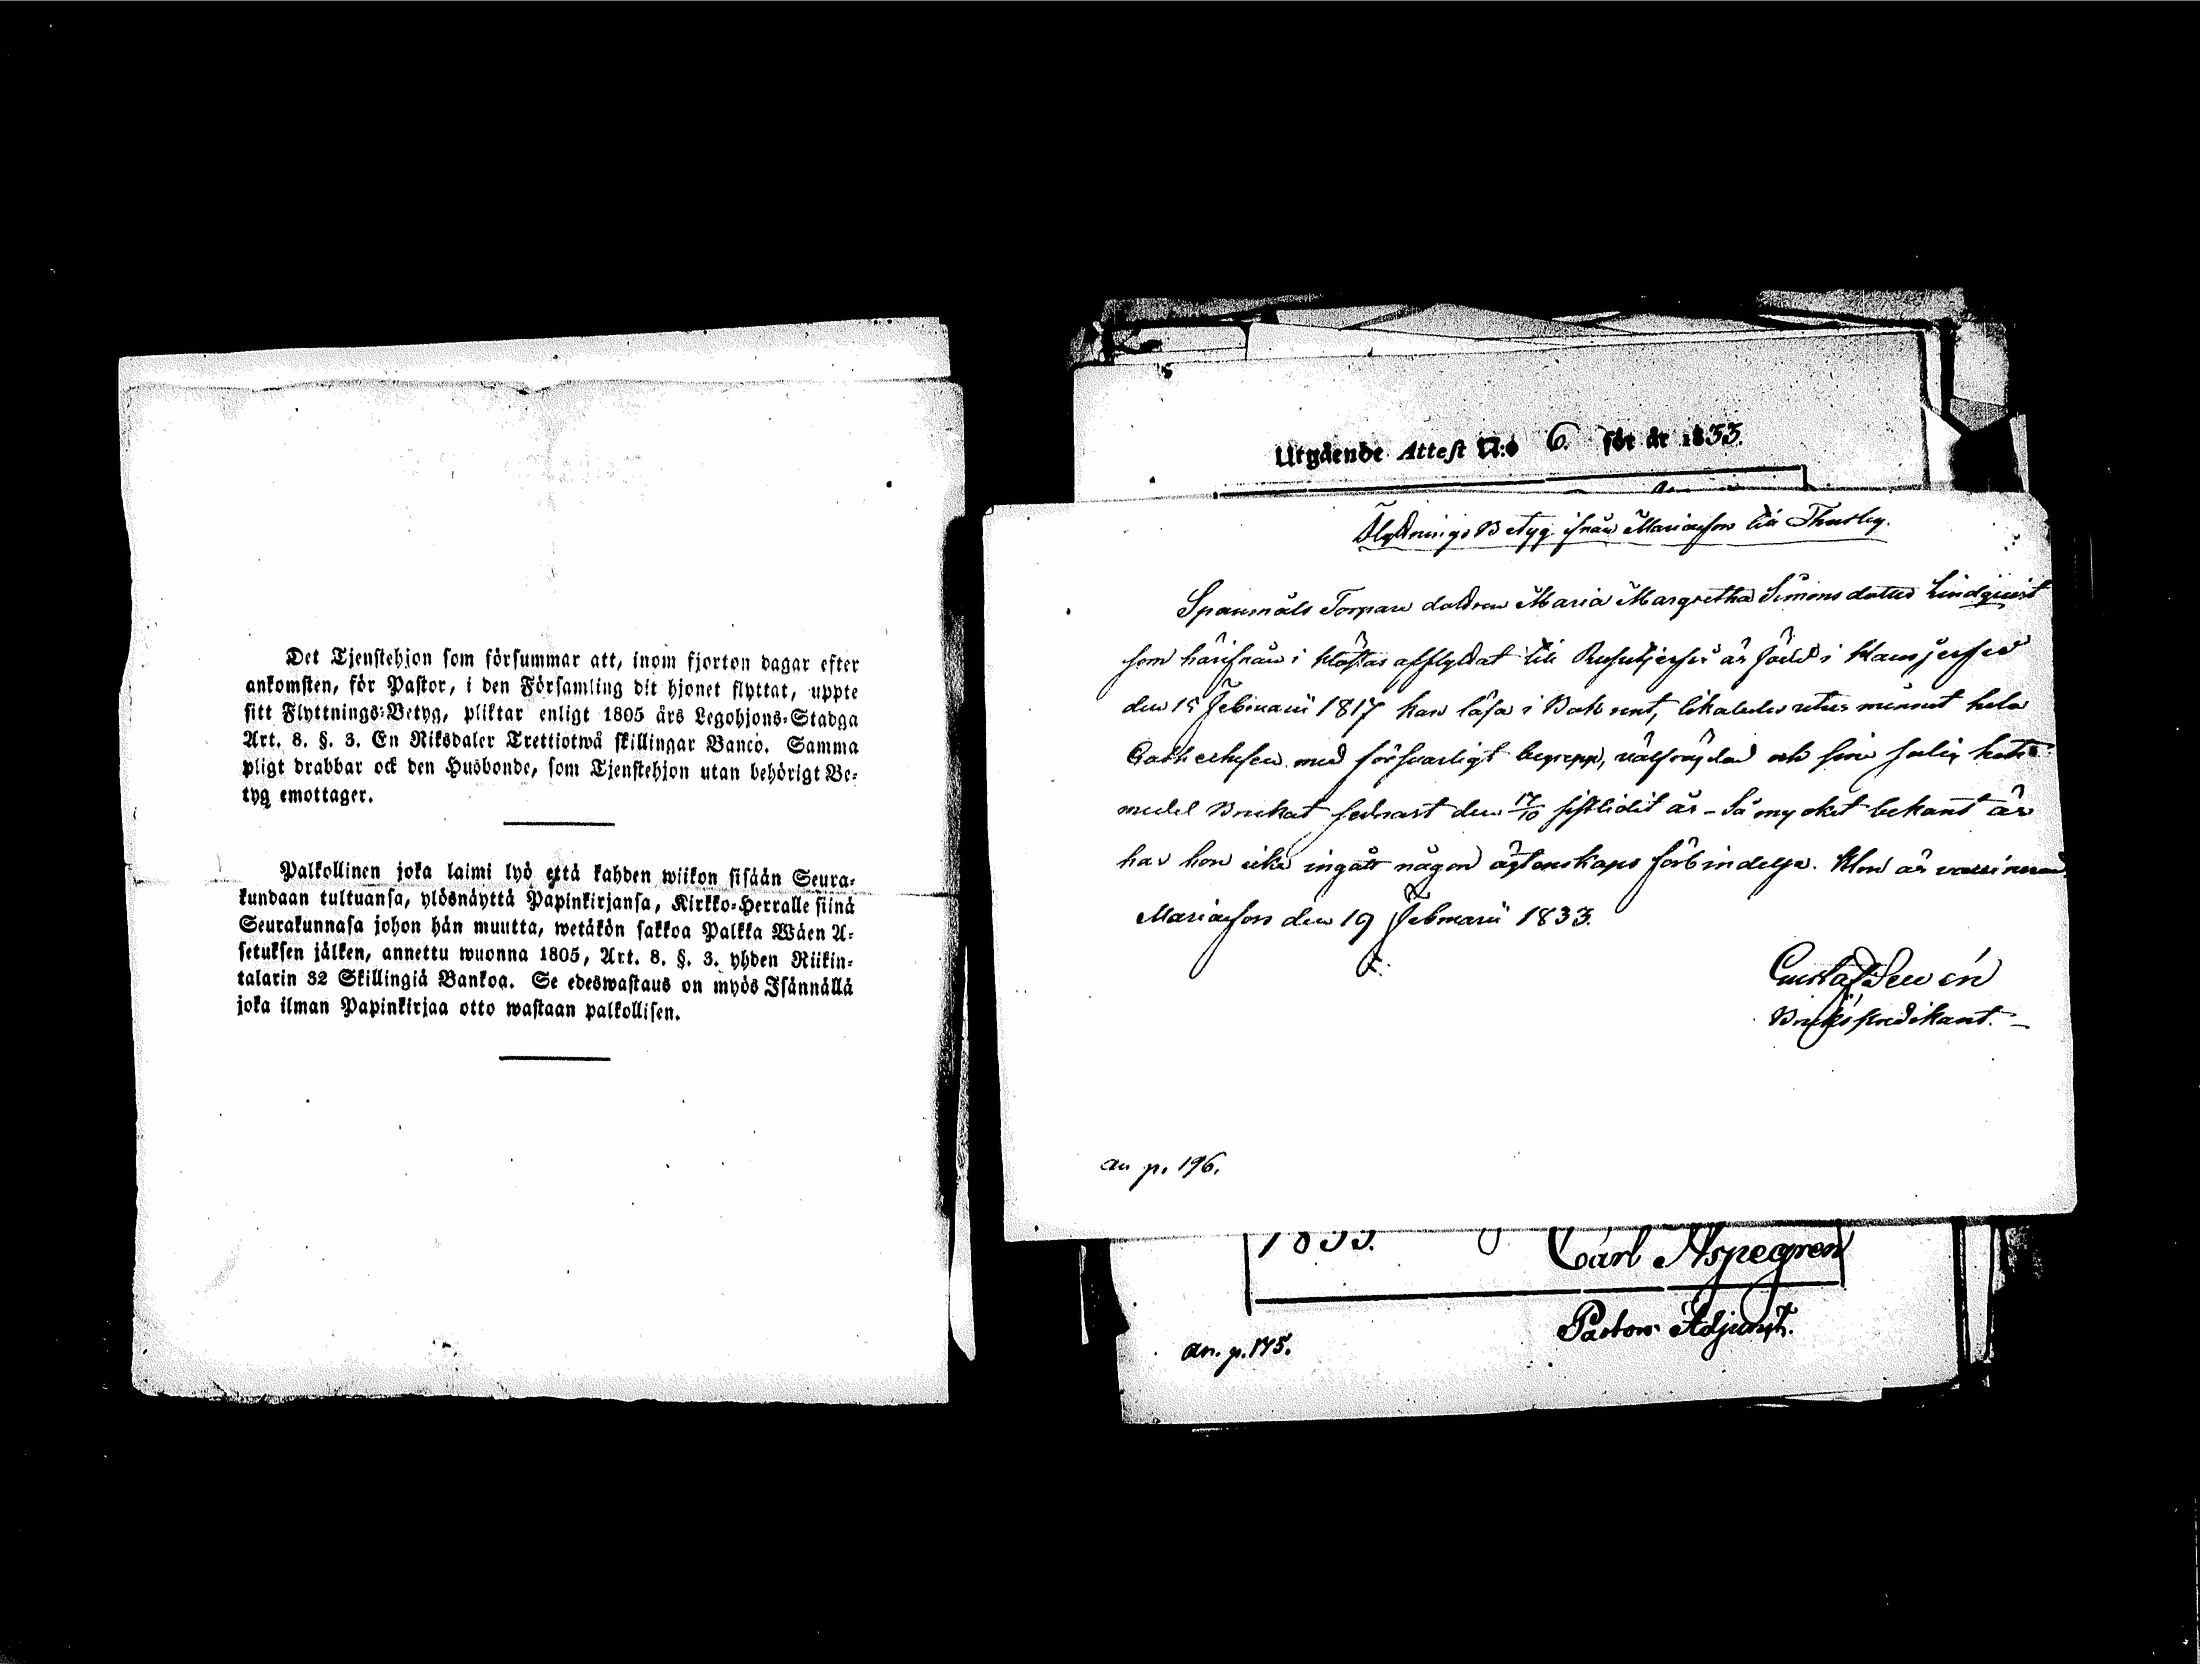 Det Tjenstehjon som försummar att, inom fjorton dagar efter
ankomsten, för Pastor, i den Församling dit hjonet flyttat, uppte
sitt Flyttnings-Betyg, pliktar enligt 1805 års Legohjons-Stadga
Art. 8. §. 3. En Riksdaler Trettiotwå skillingar Banco. Samma
pligt drabbar ock den Husbonde, som Tjenstehjon utan behörigt Be-
tyg emottager.
Palkollinen joka laimi lyö että kahden wiikon sisään Seura-
kundaan tultuansa, ylösnäyttä Papinkirjansa, Kirkko-Herralle siinä
Seurakunnasa johon hän muutta, wetäkön sakkoa Palkka Wäen A-
setuksen jälken, annettu wuonna 1805, Art. 8. §. 3. yhden Riikin-
talarin 32 Skillingiä Bankoa. Se edeswastaus on myös Isännällä
joka ilman Papinkirjaa otto wastaan palkollisen.
Utgående Attest N:o 6. för år 1833.
Flyttnings Betyg ifrån Mariæfors till Thusby.
Torpare dottren Maria Margretha Simons dotter Lindqvist
som härifrån i höstas afflyttat till är född i
den 15 Februarii 1817 kan läsa i Bok rent, likaledes utur minnet hela
med försvarligt begrepp, välfrägdad och sine salig hets
medel Brukat sednast den 17/10 sistlidit år - Så mycket bekant är
har hon icke ingått någon ägtenskaps förbindelse. Hon är vaccinerad.
Mariæfors den 19 Februarii 1833.
Gustaf
Bruks predikant.
an p. 196.
1833. Carl Aspegren
Pastors Adjunct.
an. p. 175.